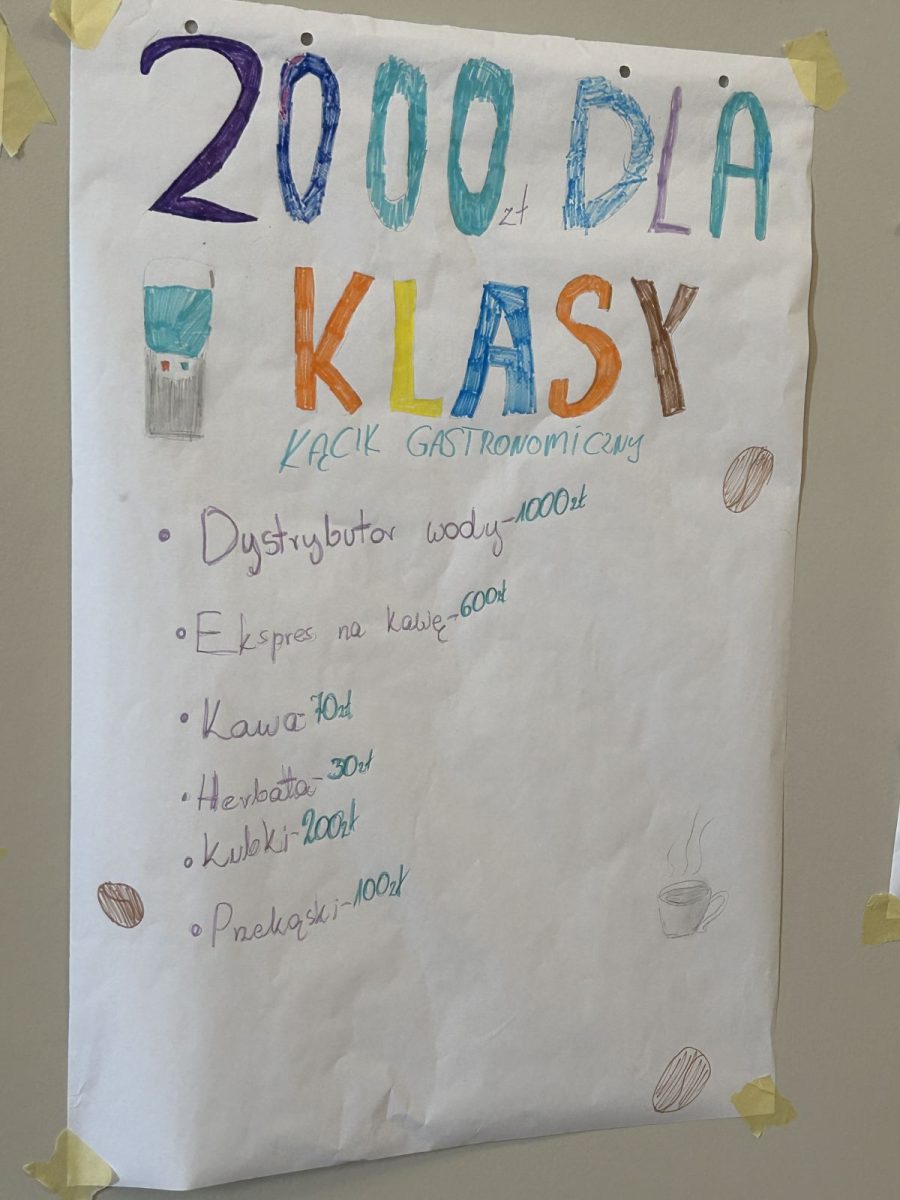 2000 zł DLA
KLASY
KĄCIK GASTRONOMICZNY
• Dystrybutor wody - 1000 zł
• Ekspres na kawę - 600 zł
• Kawa - 70 zł
• Herbata - 30 zł
• Kubki - 200 zł
• Przekąski - 100 zł